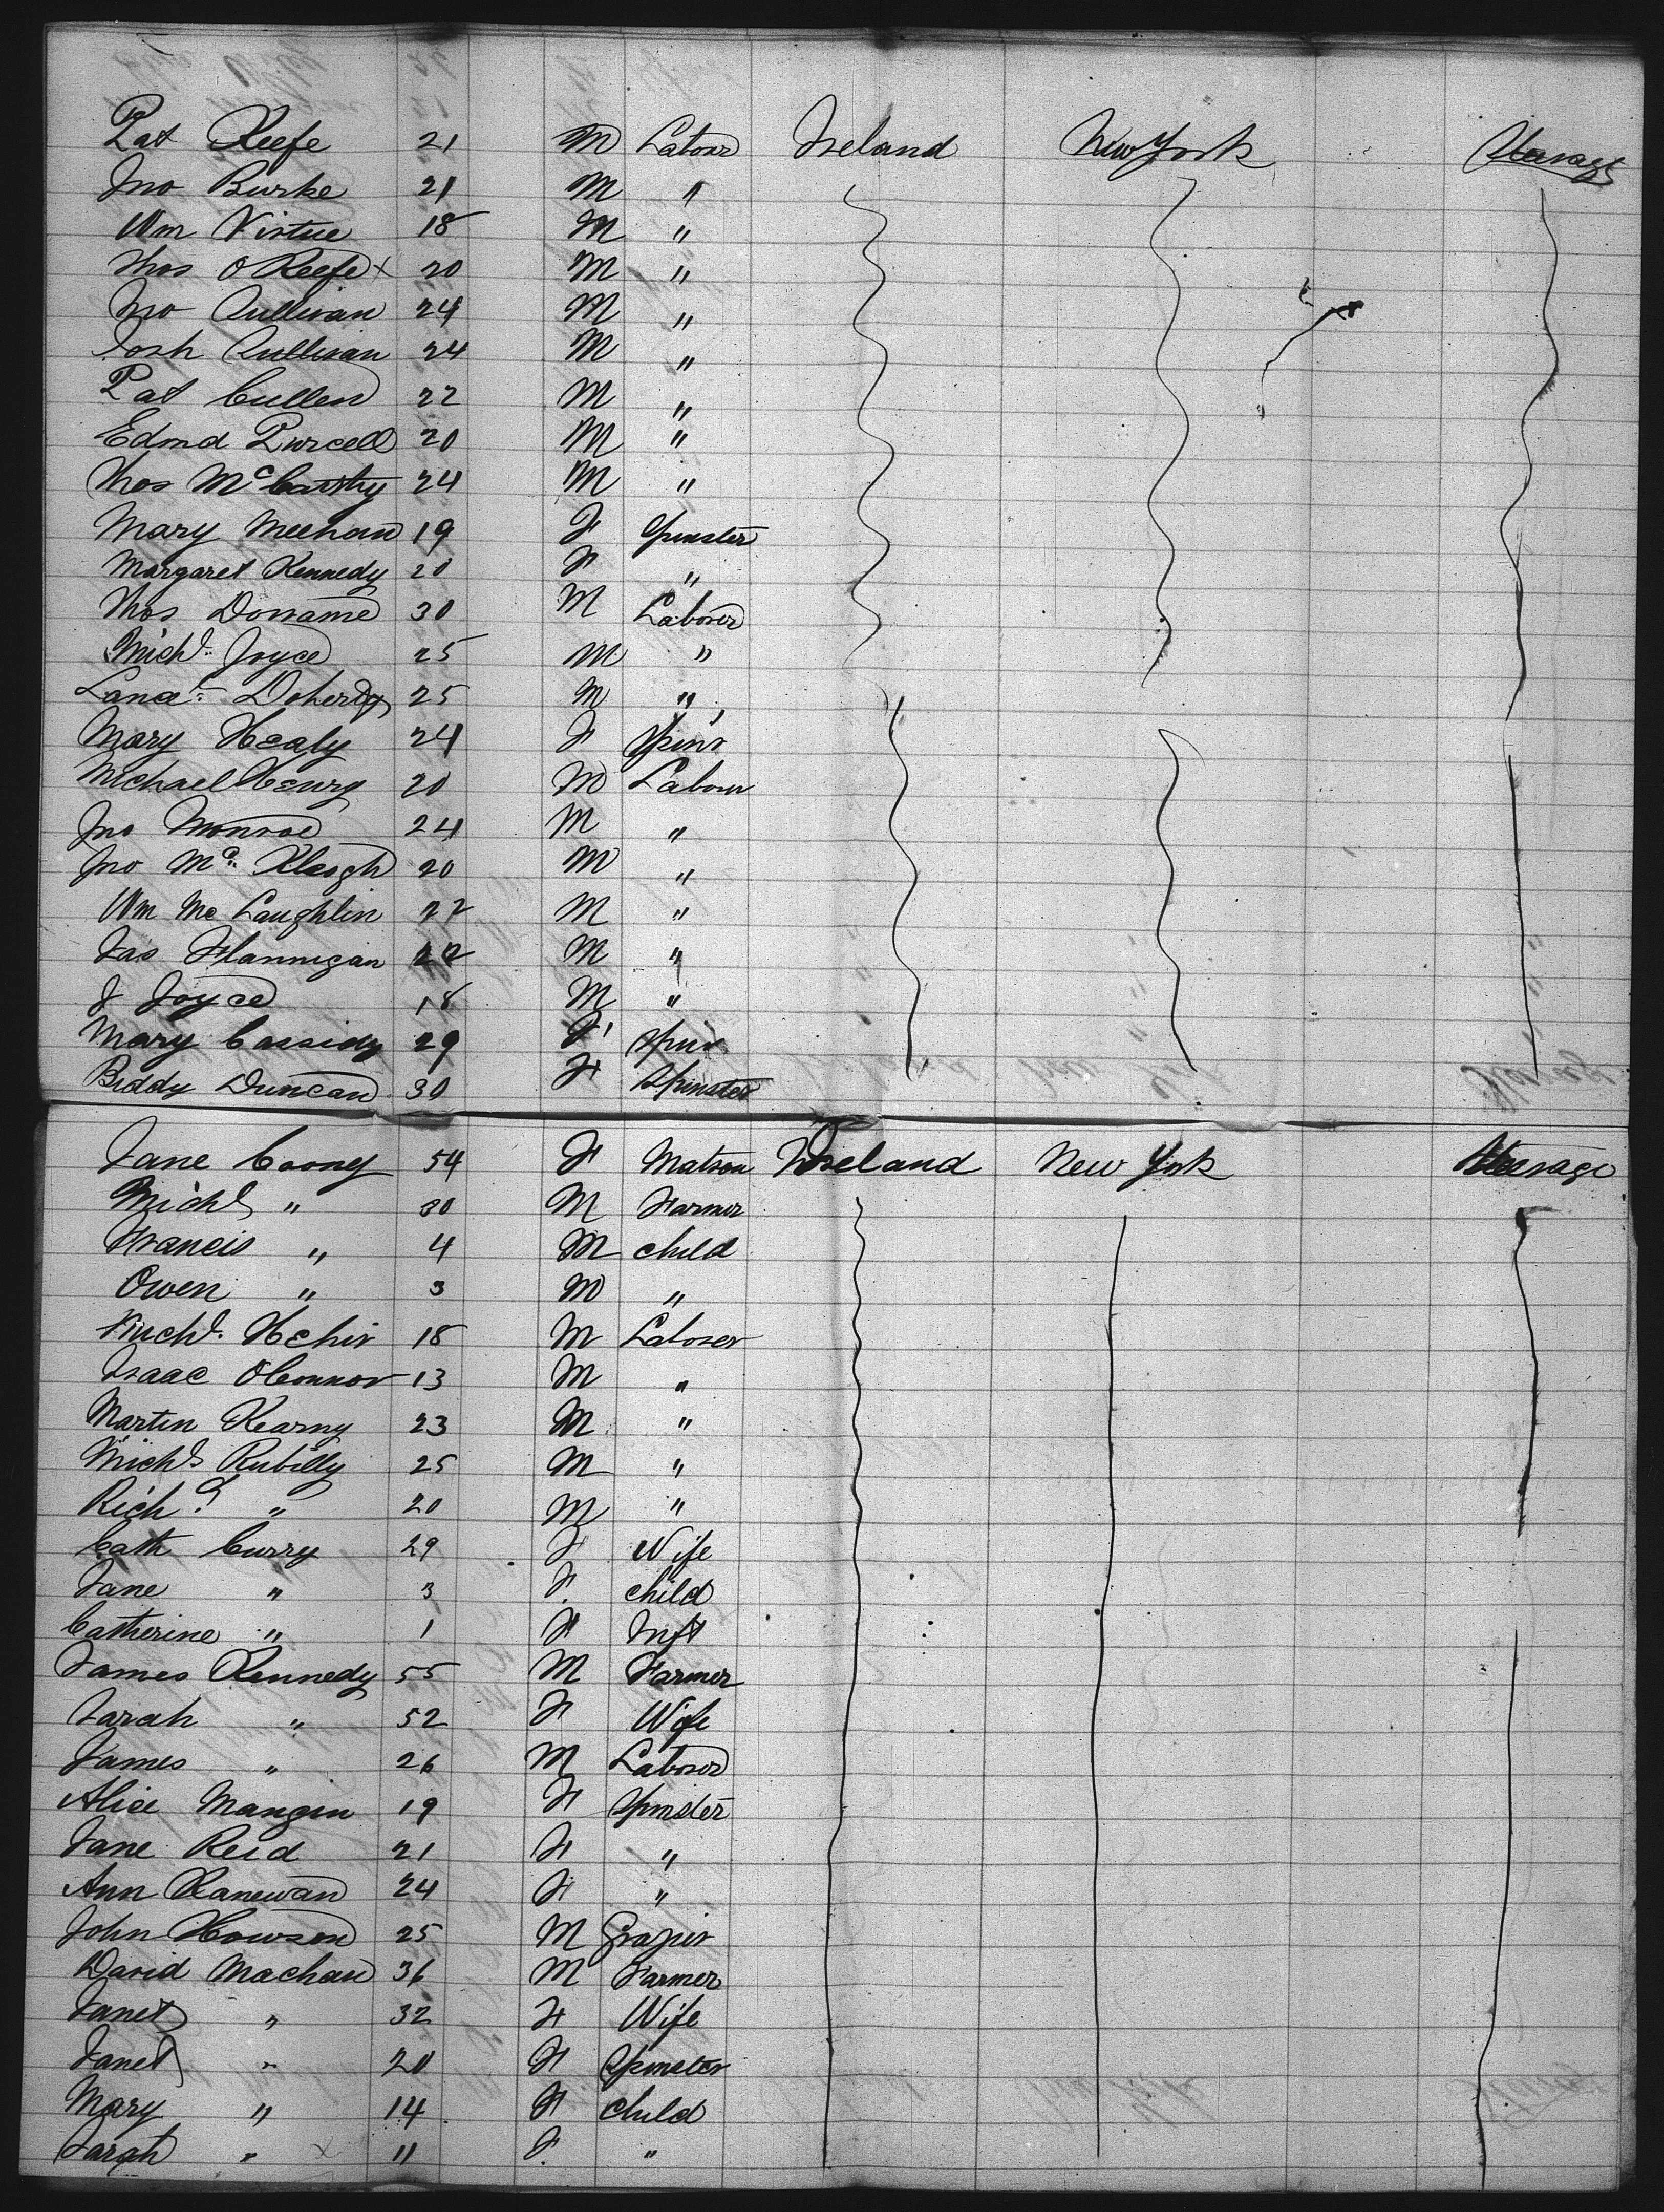 Pat Keefe 21 M Labour Ireland New York Steerage
Jno Burke 21 M "
Wm Virtue 18 M "
Thos O Keefe x 20 M "
Jno Sullivan 24 M "
Josh Sullivan 24 M "
Pat Cullen 22 M "
Edmd Purcell 20 M "
Thos McCarthy 24 M "
Mary Meehan 19 F Spinster
Margaret Kennedy 20 F "
Thos 30 M Laborer
Michl Joyce 25 M "
Lance Doherty 25 M "
Mary Healy 24 F Spin'r
Michael Henry 20 M Labour
Jno Monroe 24 M "
Jno Mc 20 M "
Wm Mc Laughlin 22 M "
Jas Flannigan 22 M "
J Joyce 18 M "
Mary Cassidy 29 F Spin'r
Biddy Duncan 30 F Spinster
Jane Coony 54 F Matron Ireland New York Steerage
Michl " 30 M Farmer
Francis " 4 M child
Owen " 3 M "
Michl Hehir 18 M Laborer
Isaac OConnor 13 M "
Martin Kearny 23 M "
Michl Rubilly 25 M "
Richd " 20 M "
Cath Curry 29 F Wife
Jane " 3 F child
Catherine " 1 F Inft
James Kennedy 55 M Farmer
Sarah " 52 F Wife
James " 26 M Laborer
Alice Mangin 19 F Spinster
Jane Reid 21 F "
Ann Kanewan 24 F "
John Howson 25 M Grazier
David Machan 36 M Farmer
Janet " 32 F Wife
Janet " 20 F Spinster
Mary " 14 F Child
Sarah " x 11 F "